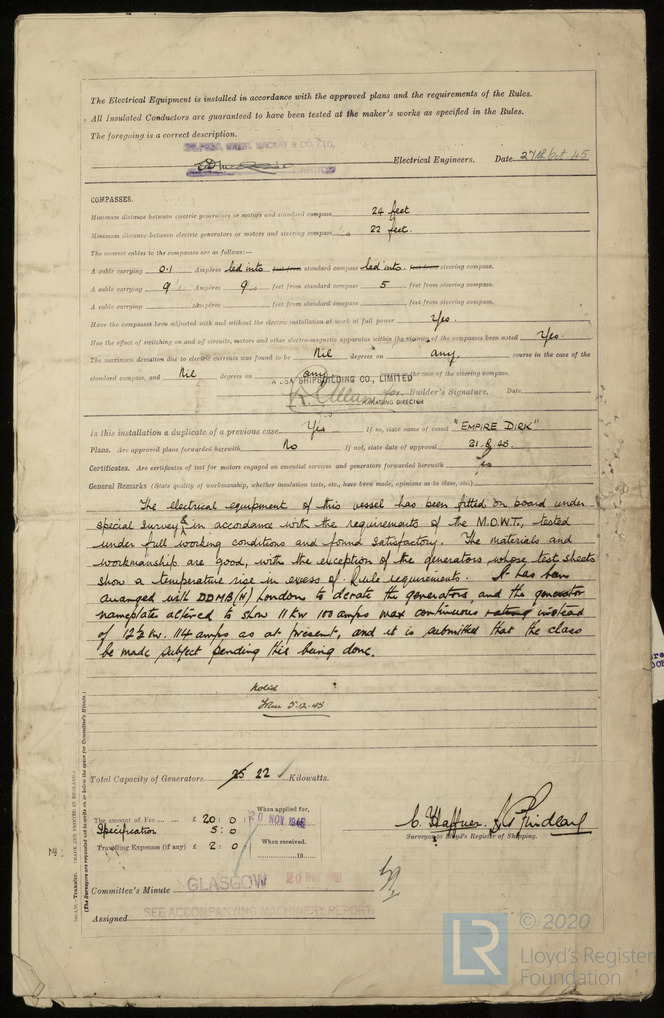 The Electrical Equipment is installed in accordance with the approved plans and the requirements of the Rules.
All Insulated Conductors are guaranteed to have been tested at the maker's works as specified in the Rules.
The foregoing is a correct description.
MACKAY & CO. LTD.
DIRECTOR
Electrical Engineers. Date 27th Oct 45
COMPASSES.
Minimum distance between electric generators or motors and standard compass 24 feet
Minimum distance between electric generators or motors and steering compass 22 feet.
The nearest cables to the compasses are as follows:—
A cable carrying 0.1 Ampères led into feet from standard compass led into feet from steering compass.
A cable carrying 9 Ampères 9 feet from standard compass 5 feet from steering compass.
A cable carrying Ampères feet from standard compass feet from steering compass.
Have the compasses been adjusted with and without the electric installation at work at full power Yes.
Has the effect of switching on and off circuits, motors and other electro-magnetic apparatus within the vicinity of the compasses been noted Yes.
The maximum deviation due to electric currents was found to be Nil degrees on any course in the case of the
standard compass, and Nil degrees on any course in the case of the steering compass.
SHIPBUILDING CO., LIMITED
Builder's Signature. Date
DIRECTOR
Is this installation a duplicate of a previous case Yes If so, state name of vessel "EMPIRE DIRK"
Plans. Are approved plans forwarded herewith No If not, state date of approval 31.8.45.
Certificates. Are certificates of test for motors engaged on essential services and generators forwarded herewith Yes
General Remarks (State quality of workmanship, whether insulation tests, etc., have been made, opinions as to class, etc.)
The electrical equipment of this vessel has been fitted on board under
special survey & in accordance with the requirements of the M.O.W.T., tested
under full working conditions and found satisfactory. The materials and
workmanship are good, with the exception of the generators whose test sheets
show a temperature rise in excess of Rule requirements. It has been
arranged with DDMB(N) London to derate the generators, and the generator
nameplates altered to show 11 KW 100 amps max continuous rating instead
of 12½ Kw. 114 amps as at present, and it is submitted that the class
be made subject pending this being done.
Noted
5.12.45
Total Capacity of Generators 25 22 Kilowatts.
The amount of Fee ... ... £ 20 : 0 : When applied for,
20 NOV 1945
Specification 5 : 0
Travelling Expenses (if any) £ 2 : 0 : When received,
19
Surveyor to Lloyd's Register of Shipping.
Committee's Minute GLASGOW 20 NOV
Assigned SEE ACCOMPANYING MACHINERY REPORT
Transfer. (MADE AND PRINTED IN ENGLAND.)
(The Surveyors are requested not to write on or below the space for Committee's Minute.)
LR
© 2020
Lloyd's Register
Foundation